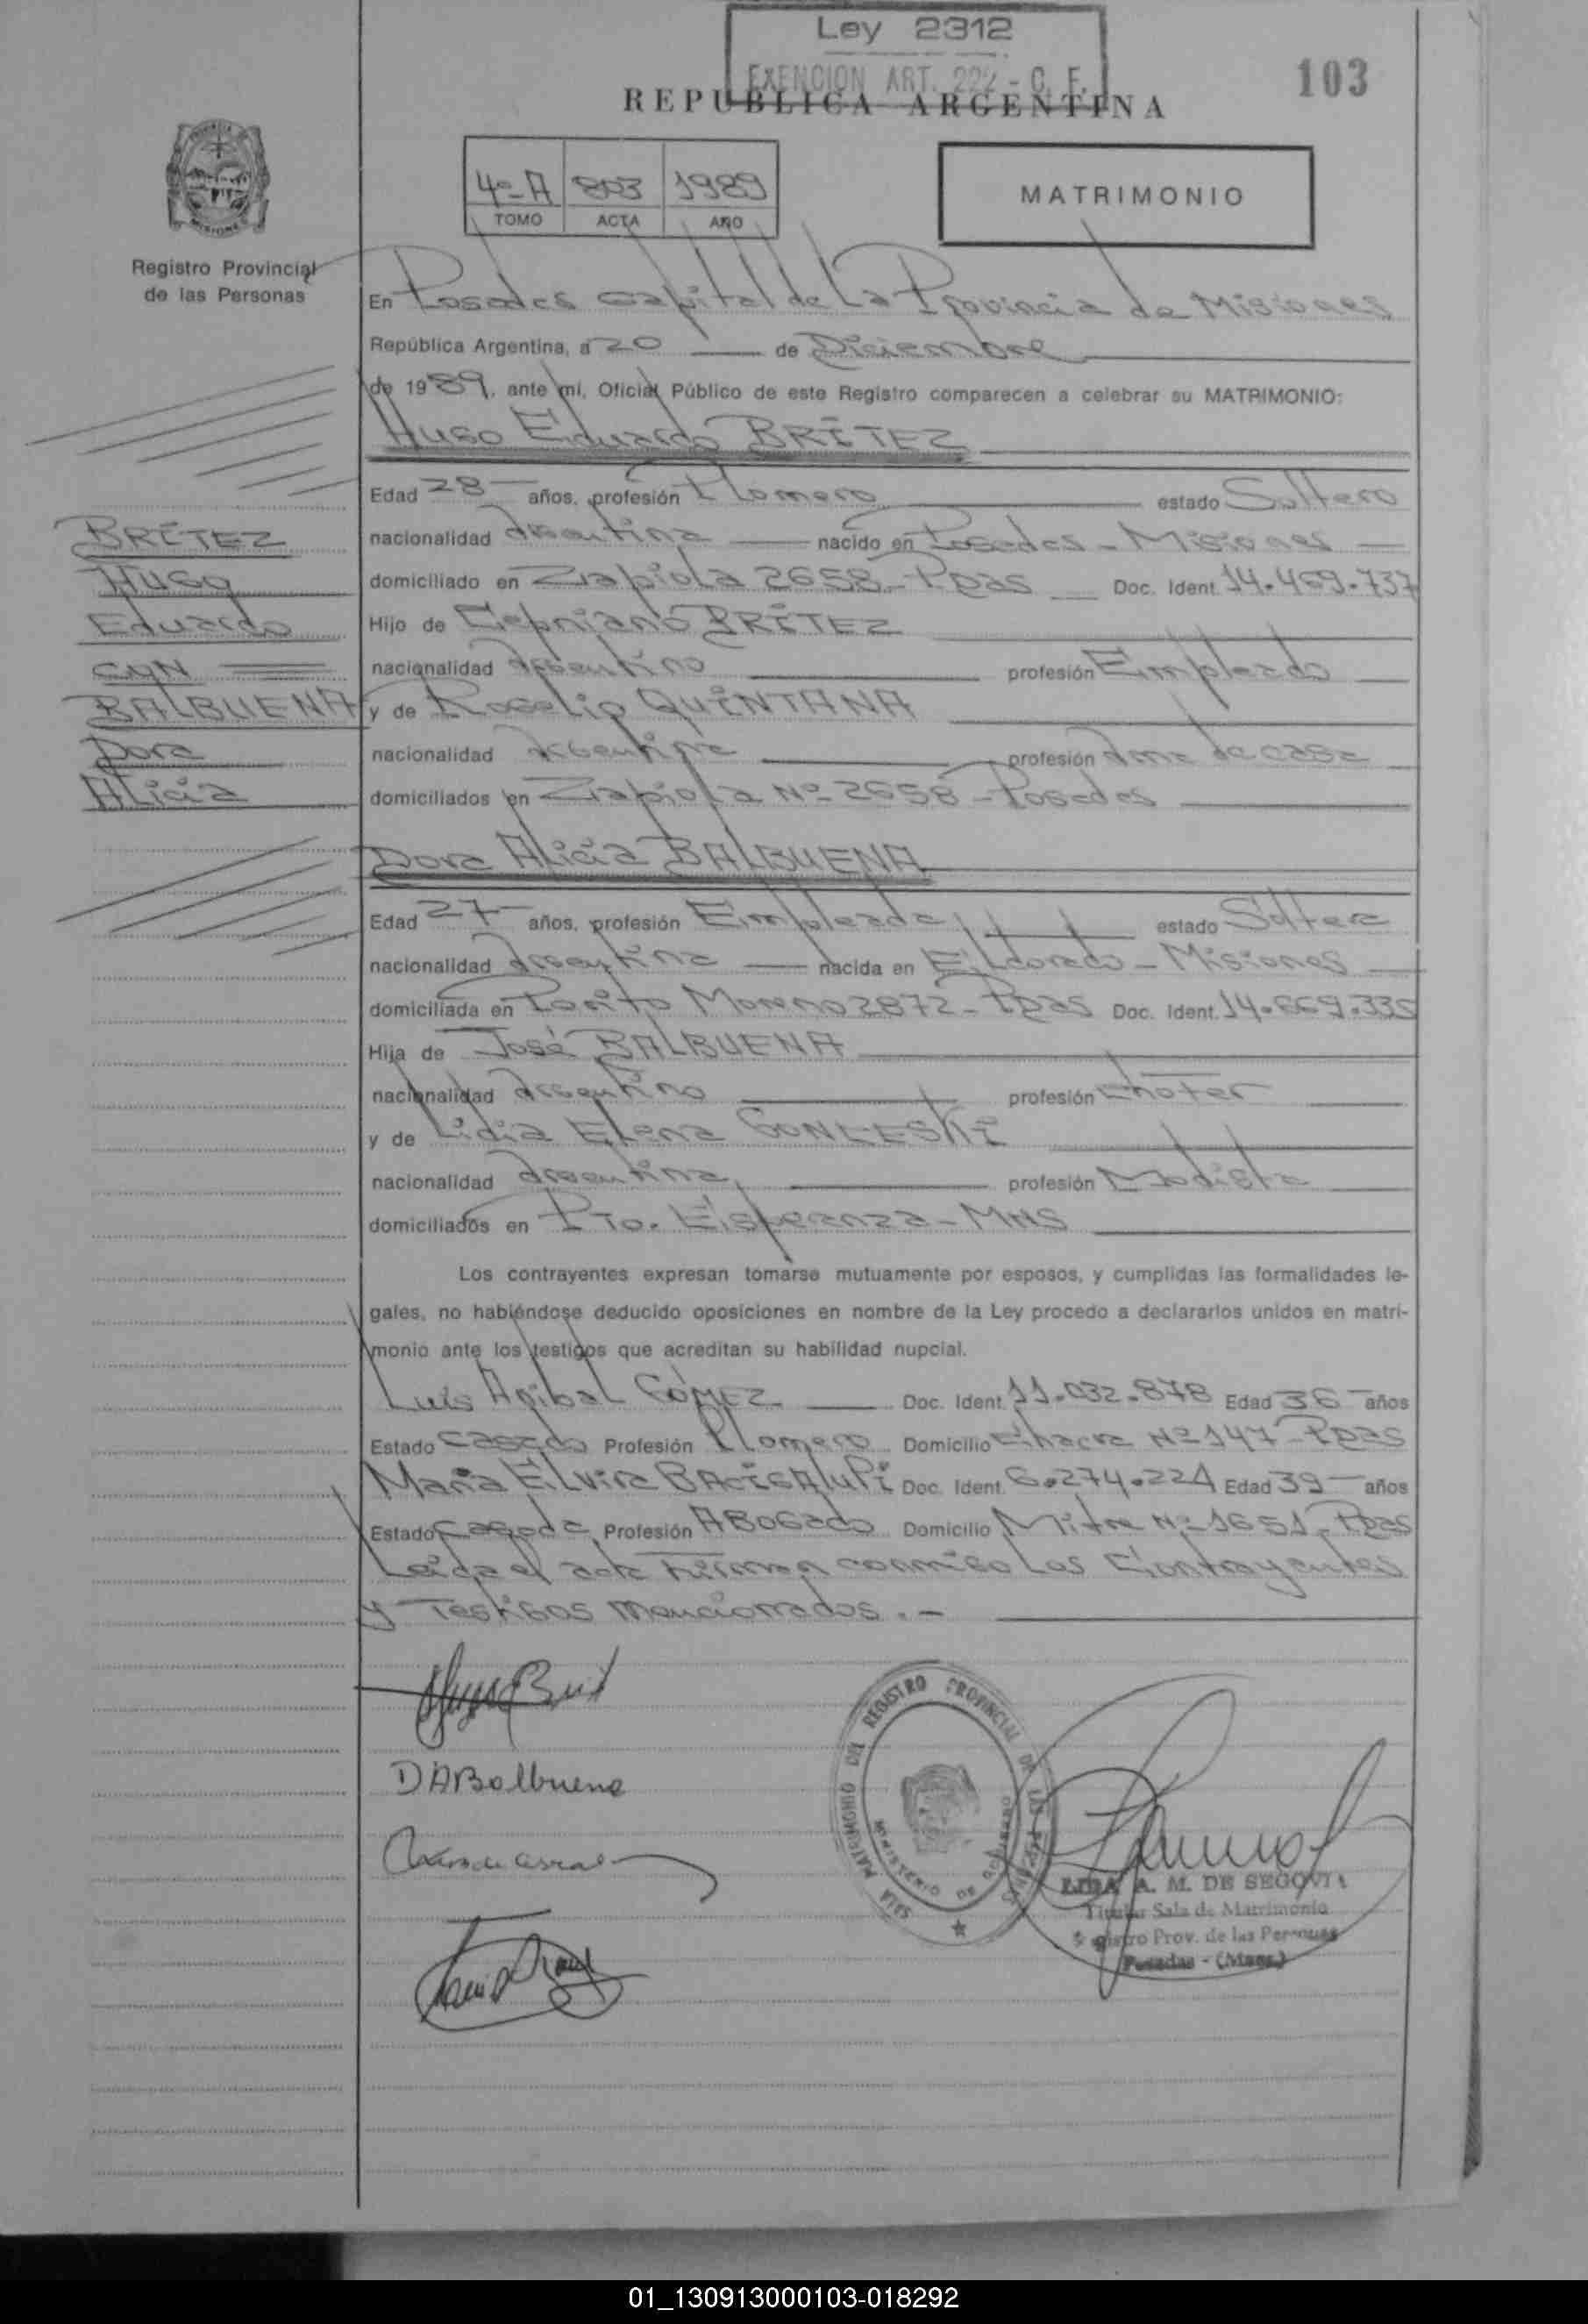 Ley 2312
EXENCION ART. 222 - C. F.
103
REPUBLICA ARGENTINA
4º-A 803 1989
TOMO ACTA AÑO
MATRIMONIO
Registro Provincial
de las Personas
En Posadas Capital de La Provincia de Misiones
República Argentina, a 20 de Diciembre
de 1989, ante mí, Oficial Público de este Registro comparecen a celebrar su MATRIMONIO:
Hugo Eduardo BRÍTEZ
Edad 28 años, profesión Plomero estado Soltero
nacionalidad Argentina nacido en Posadas - Misiones
domiciliado en Zapiola 2658 - Ppas Doc. Ident. 14.469.737
Hijo de Cipriano BRÍTEZ
nacionalidad Argentino profesión Empleado
y de Rogelia QUINTANA
nacionalidad Argentina profesión Ama de casa
domiciliados en Zapiola Nº 2658 - Posadas
BRÍTEZ
Hugo
Eduardo
CON
BALBUENA
Dora
Alicia
Dora Alicia BALBUENA
Edad 27 años, profesión Empleada estado Soltera
nacionalidad Argentina nacida en Eldorado - Misiones
domiciliada en Perito Moreno 2872 - Ppas Doc. Ident. 14.669.335
Hija de José BALBUENA
nacionalidad Argentino profesión Chofer
y de Lidia Elena
nacionalidad Argentina profesión Modista
domiciliados en Pto. Esperanza - MNS
Los contrayentes expresan tomarse mutuamente por esposos, y cumplidas las formalidades le-
gales, no habiéndose deducido oposiciones en nombre de la Ley procedo a declararlos unidos en matri-
monio ante los testigos que acreditan su habilidad nupcial.
Luis Anibal GÓMEZ Doc. Ident. 11.032.878 Edad 36 años
Estado Casado Profesión Plomero Domicilio Chacra Nº 147 - Ppas
Maria Elvira BACIGALUPI Doc. Ident. 6.274.224 Edad 39 años
Estado Casada Profesión ABOGADO Domicilio Mitre Nº 1651 - Ppas
Leida el acta Firman conmigo Los Contrayentes
y Testigos mencionados.-
DABalbuena
SALA MATRIMONIO DEL REGISTRO PROVINCIAL DE LAS PERSONAS
MINISTERIO DE GOBIERNO
LIDIA A. M. DE SEGOVIA
Titular Sala de Matrimonio
Registro Prov. de las Personas
Posadas - (Mnes.)
01_130913000103-018292